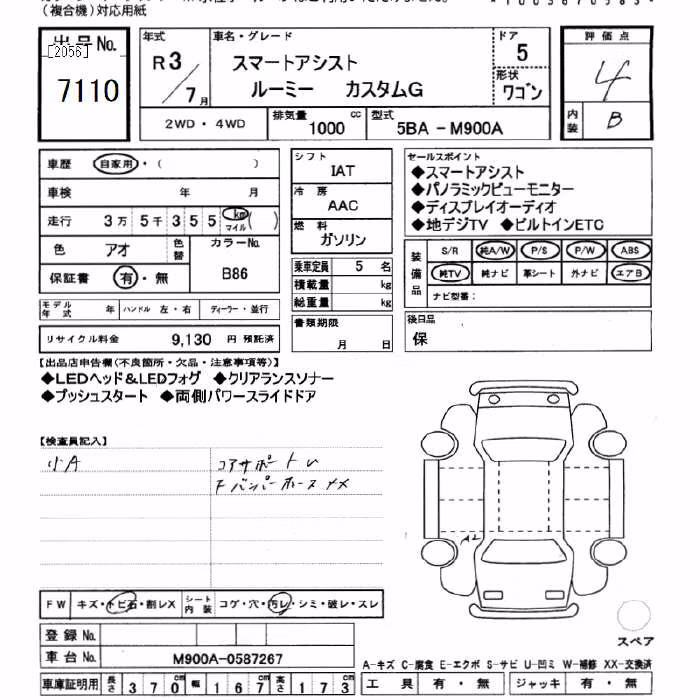 （複合機）対応用紙
出品No.
[2056]
7110
年式
R3/7月
車名・グレード
スマートアシスト
ルーミー カスタムG
ドア
5
形状
ワゴン
評価点
4
内装
B
2WD・4WD
排気量
1000 cc
型式
5BA-M900A
車歴 自家用・( )
車検 年 月
走行 3万5千355 km マイル( )
色 アオ
色替
カラーNo.
B86
保証書 有・無
シフト
IAT
冷房
AAC
燃料
ガソリン
乗車定員 5 名
積載量 kg
総重量 kg
セールスポイント
◆スマートアシスト
◆パノラミックビューモニター
◆ディスプレイオーディオ
◆地デジTV ◆ビルトインETC
装備品
S/R 純A/W P/S P/W ABS
純TV 純ナビ 革シート 外ナビ エアB
ナビ型番：
モデル年式 年 ハンドル 左・右 ディーラー・並行
リサイクル料金 9,130 円 預託済
書類期限
月 日
後日品
保
【出品店申告欄（不良箇所・欠品・注意事項等）】
◆LEDヘッド&LEDフォグ ◆クリアランスソナー
◆プッシュスタート ◆両側パワースライドドア
【検査員記入】
小A
コアサポートレ
FバンパーホースXX
A2
FW キズ・トビ石・割レX シート内装 コゲ・穴・汚レ・シミ・破レ・スレ
登録No.
車台No. M900A-0587267
車庫証明用 長さ 370cm 幅 167cm 高さ 173cm
スペア
A-キズ C-腐食 E-エクボ S-サビ U-凹ミ W-補修 XX-交換済
工具 有・無 ジャッキ 有・無